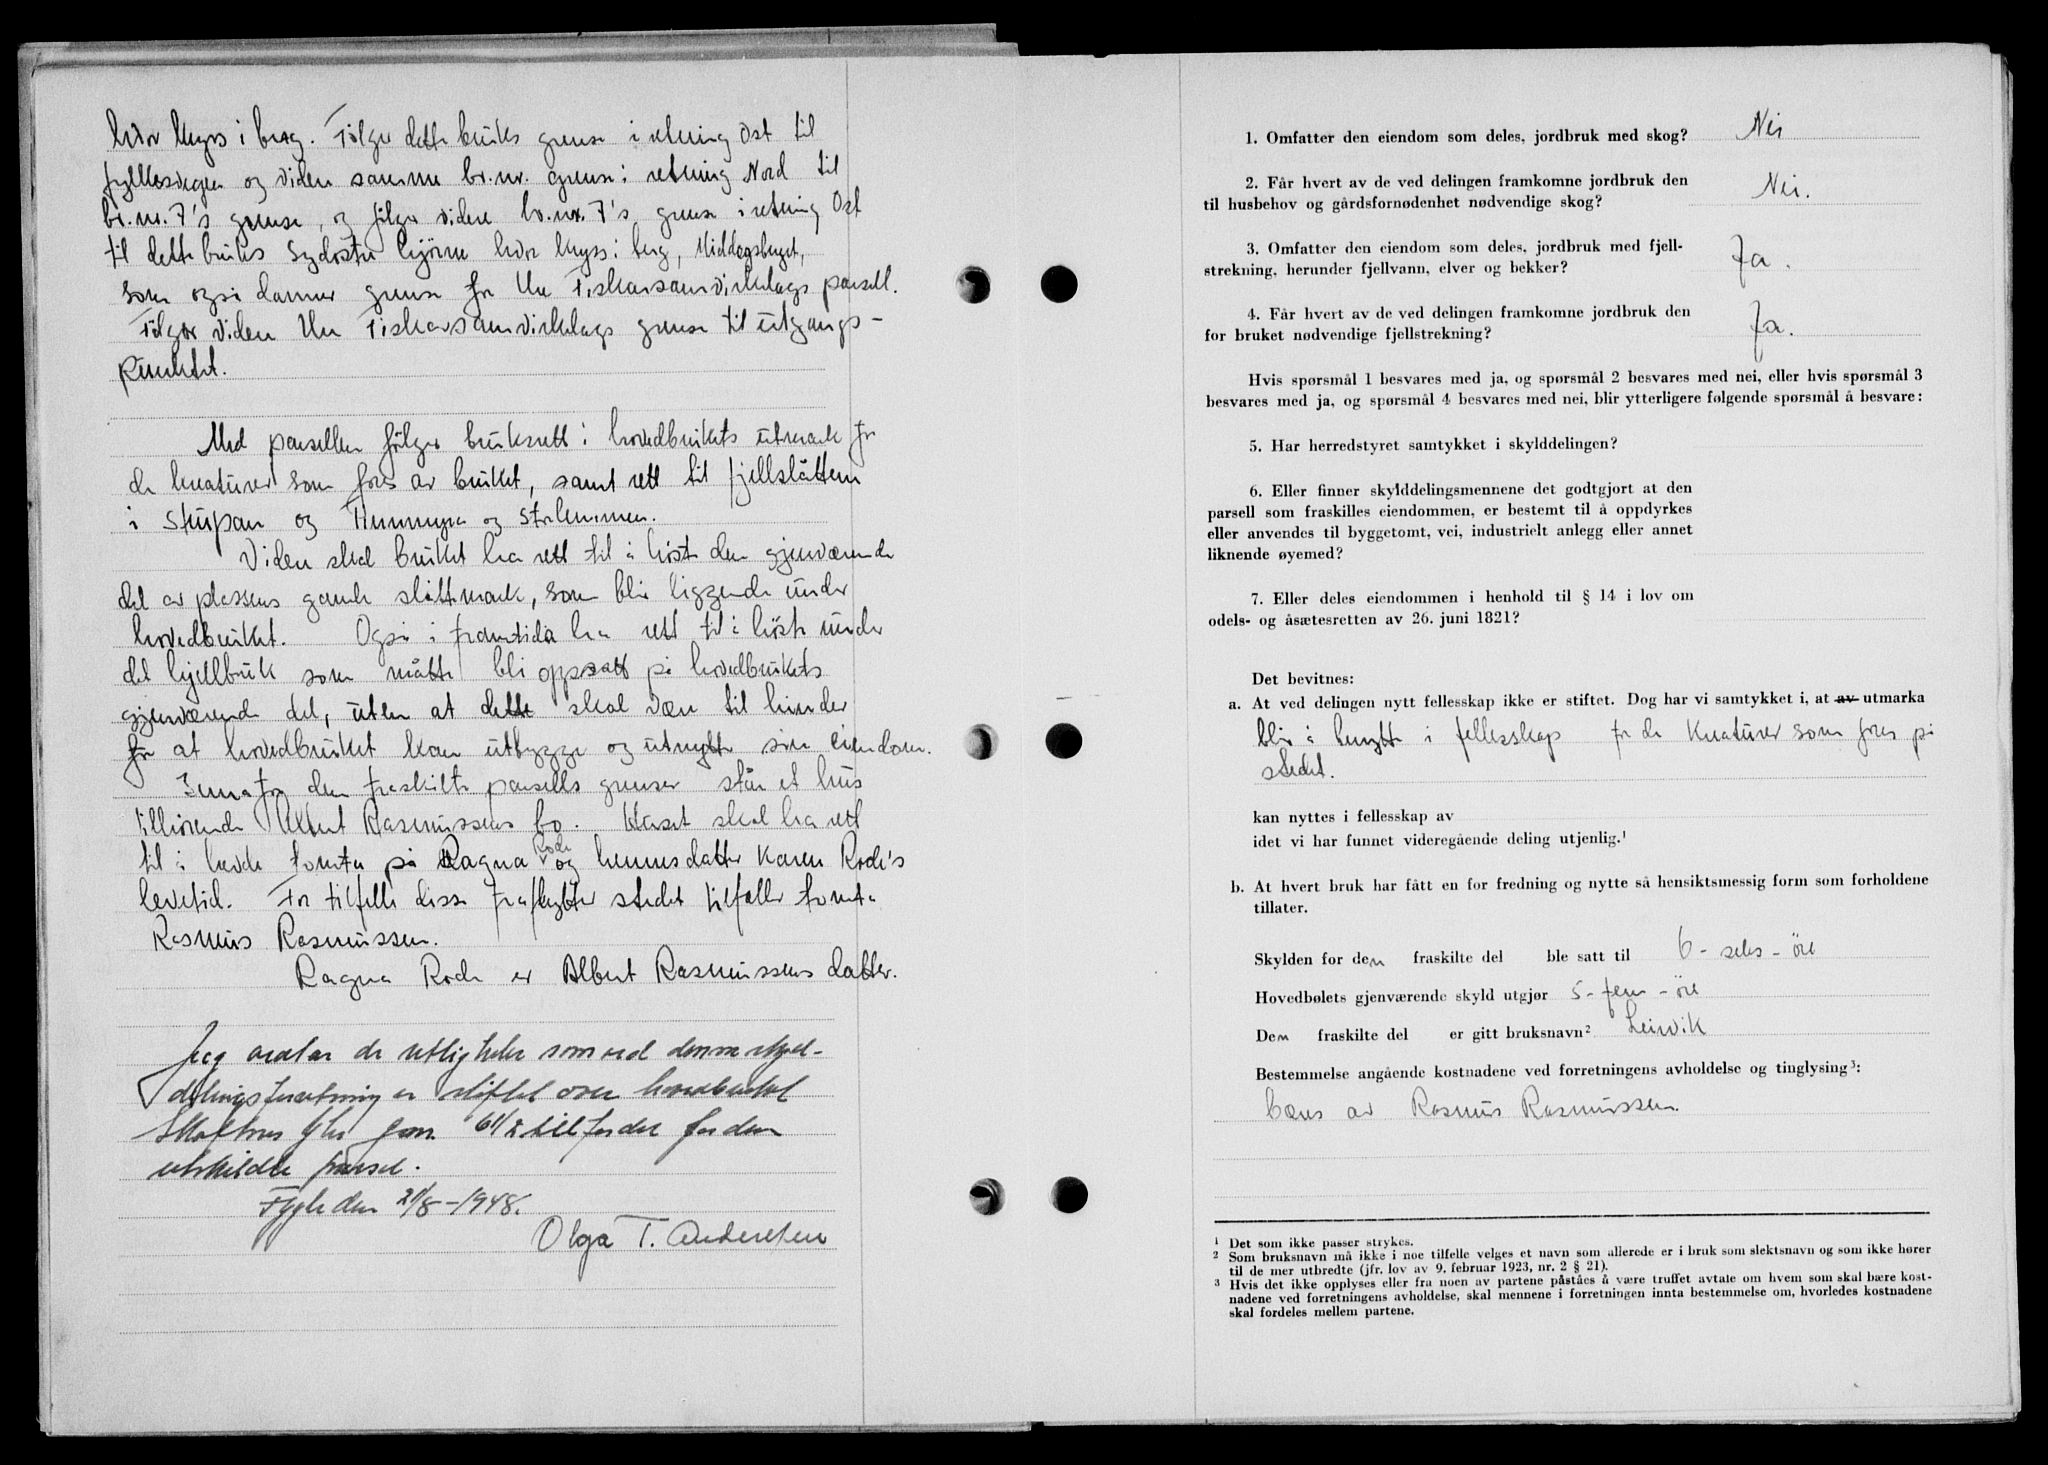 hvor kryss i berg. Følger dette bruks grense i retning Øst til
fyllesvegen og viden samme br.nr. grense i retning Nord til
br.nr. 7's grense, og følger videre br.nr. 7's grense i retning Øst
til dette bruks Sydøstre hjørne hvor kryss i berg, Middagsberget,
som også danner grense for Ure Fiskersamvirkelags parsell.
Følger viden Ure Fiskersamvirkelags grense til utgangs-
punktet.
Med parsellen følger bruksrett i hovedbrukets utmark for
de kreaturer som fores av bruket, samt rett til fjellslåtten
i Stupan og og
Viden skal bruket ha rett til å høste den gjenværende
del av plassens gamle slåttmark, som blir liggende under
hovedbruket. Også i framtida ha rett til å høste under
det hjellbruk som måtte bli oppsatt på hovedbrukets
gjenværende del, uten at dette skal være til hinder
for at hovedbruket kan utbygge og utnytte sin eiendom.
Innafor den fraskilte parsells grenser står et hus
tilhørende Albert Rasmussens bo. Huset skal ha rett
til å hevde tomta på Ragna Rode og hennes datter Karen Rode's
levetid. For tilfelle disse fraflytter stedet tilfaller tomta
Rasmus Rasmussen.
Ragna Rode er Albert Rasmussens datter.
Jeg vedtar de rettigheter som ved denne skyld-
delingsforretning er stiftet over hovedbruket
til fordel for den
utskildte parsel.
Fygle den 21/8-1948.
Olga T. Andersen
1. Omfatter den eiendom som deles, jordbruk med skog? Nei
2. Får hvert av de ved delingen framkomne jordbruk den
til husbehov og gårdsfornødenhet nødvendige skog? Nei.
3. Omfatter den eiendom som deles, jordbruk med fjell-
strekning, herunder fjellvann, elver og bekker? Ja.
4. Får hvert av de ved delingen framkomne jordbruk den
for bruket nødvendige fjellstrekning? Ja.
Hvis spørsmål 1 besvares med ja, og spørsmål 2 besvares med nei, eller hvis spørsmål 3
besvares med ja, og spørsmål 4 besvares med nei, blir ytterligere følgende spørsmål å besvare:
5. Har herredstyret samtykket i skylddelingen?
6. Eller finner skylddelingsmennene det godtgjort at den
parsell som fraskilles eiendommen, er bestemt til å oppdyrkes
eller anvendes til byggetomt, vei, industrielt anlegg eller annet
liknende øyemed?
7. Eller deles eiendommen i henhold til § 14 i lov om
odels- og åsætesretten av 26. juni 1821?
Det bevitnes:
a. At ved delingen nytt fellesskap ikke er stiftet. Dog har vi samtykket i, at av utmarka
blir å benytte i fellesskap for de kreaturer som fores på
stedet.
kan nyttes i fellesskap av
idet vi har funnet videregående deling utjenlig.¹
b. At hvert bruk har fått en for fredning og nytte så hensiktsmessig form som forholdene
tillater.
Skylden for den fraskilte del ble satt til 6 - seks - øre
Hovedbølets gjenværende skyld utgjør 5 - fem - øre
Den fraskilte del er gitt bruksnavn² Leirvik
Bestemmelse angående kostnadene ved forretningens avholdelse og tinglysing³:
bæres av Rasmus Rasmussen.
¹ Det som ikke passer strykes.
² Som bruksnavn må ikke i noe tilfelle velges et navn som allerede er i bruk som slektsnavn og som ikke hører
til de mer utbredte (jfr. lov av 9. februar 1923, nr. 2 § 21).
³ Hvis det ikke opplyses eller fra noen av partene påståes å være truffet avtale om hvem som skal bære kost-
nadene ved forretningens avholdelse, skal mennene i forretningen innta bestemmelse om, hvorledes kostnadene
skal fordeles mellem partene.